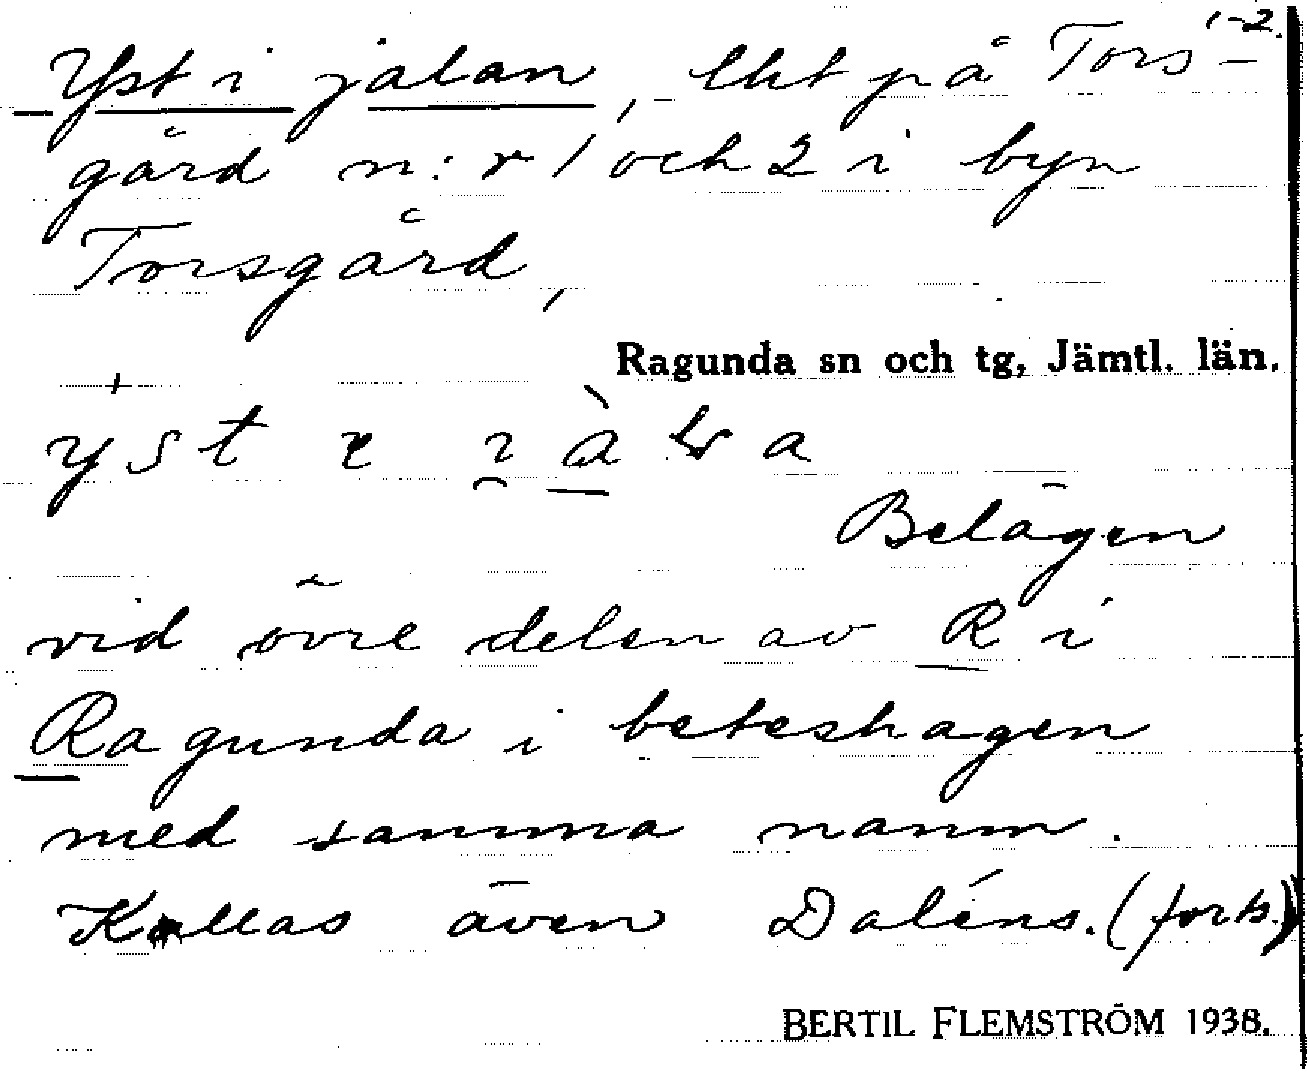 1-2.
Yst i jalan, lht på Tors-
gård n:r 1 och 2 i byn
Torsgård,
Ragunda sn och tg, Jämtl. län.
Belägen
vid övre delen av R i
Ragunda i beteshagen
med samma namn.
Kallas även Daléns. (forts.)
BERTIL FLEMSTRÖM 1938.